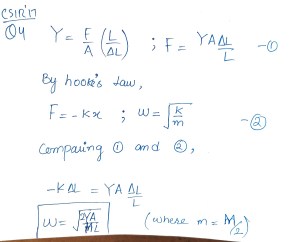 CSIR'17
Q4 Y = F/A (L/ΔL) ; F = YAΔL/L -①
By hooke's Law,
F = -Kx ; ω = √(K/m) -②
Comparing ① and ②,
-KΔL = YA ΔL/L
ω = √(2YA/ML) (where m = M/2)